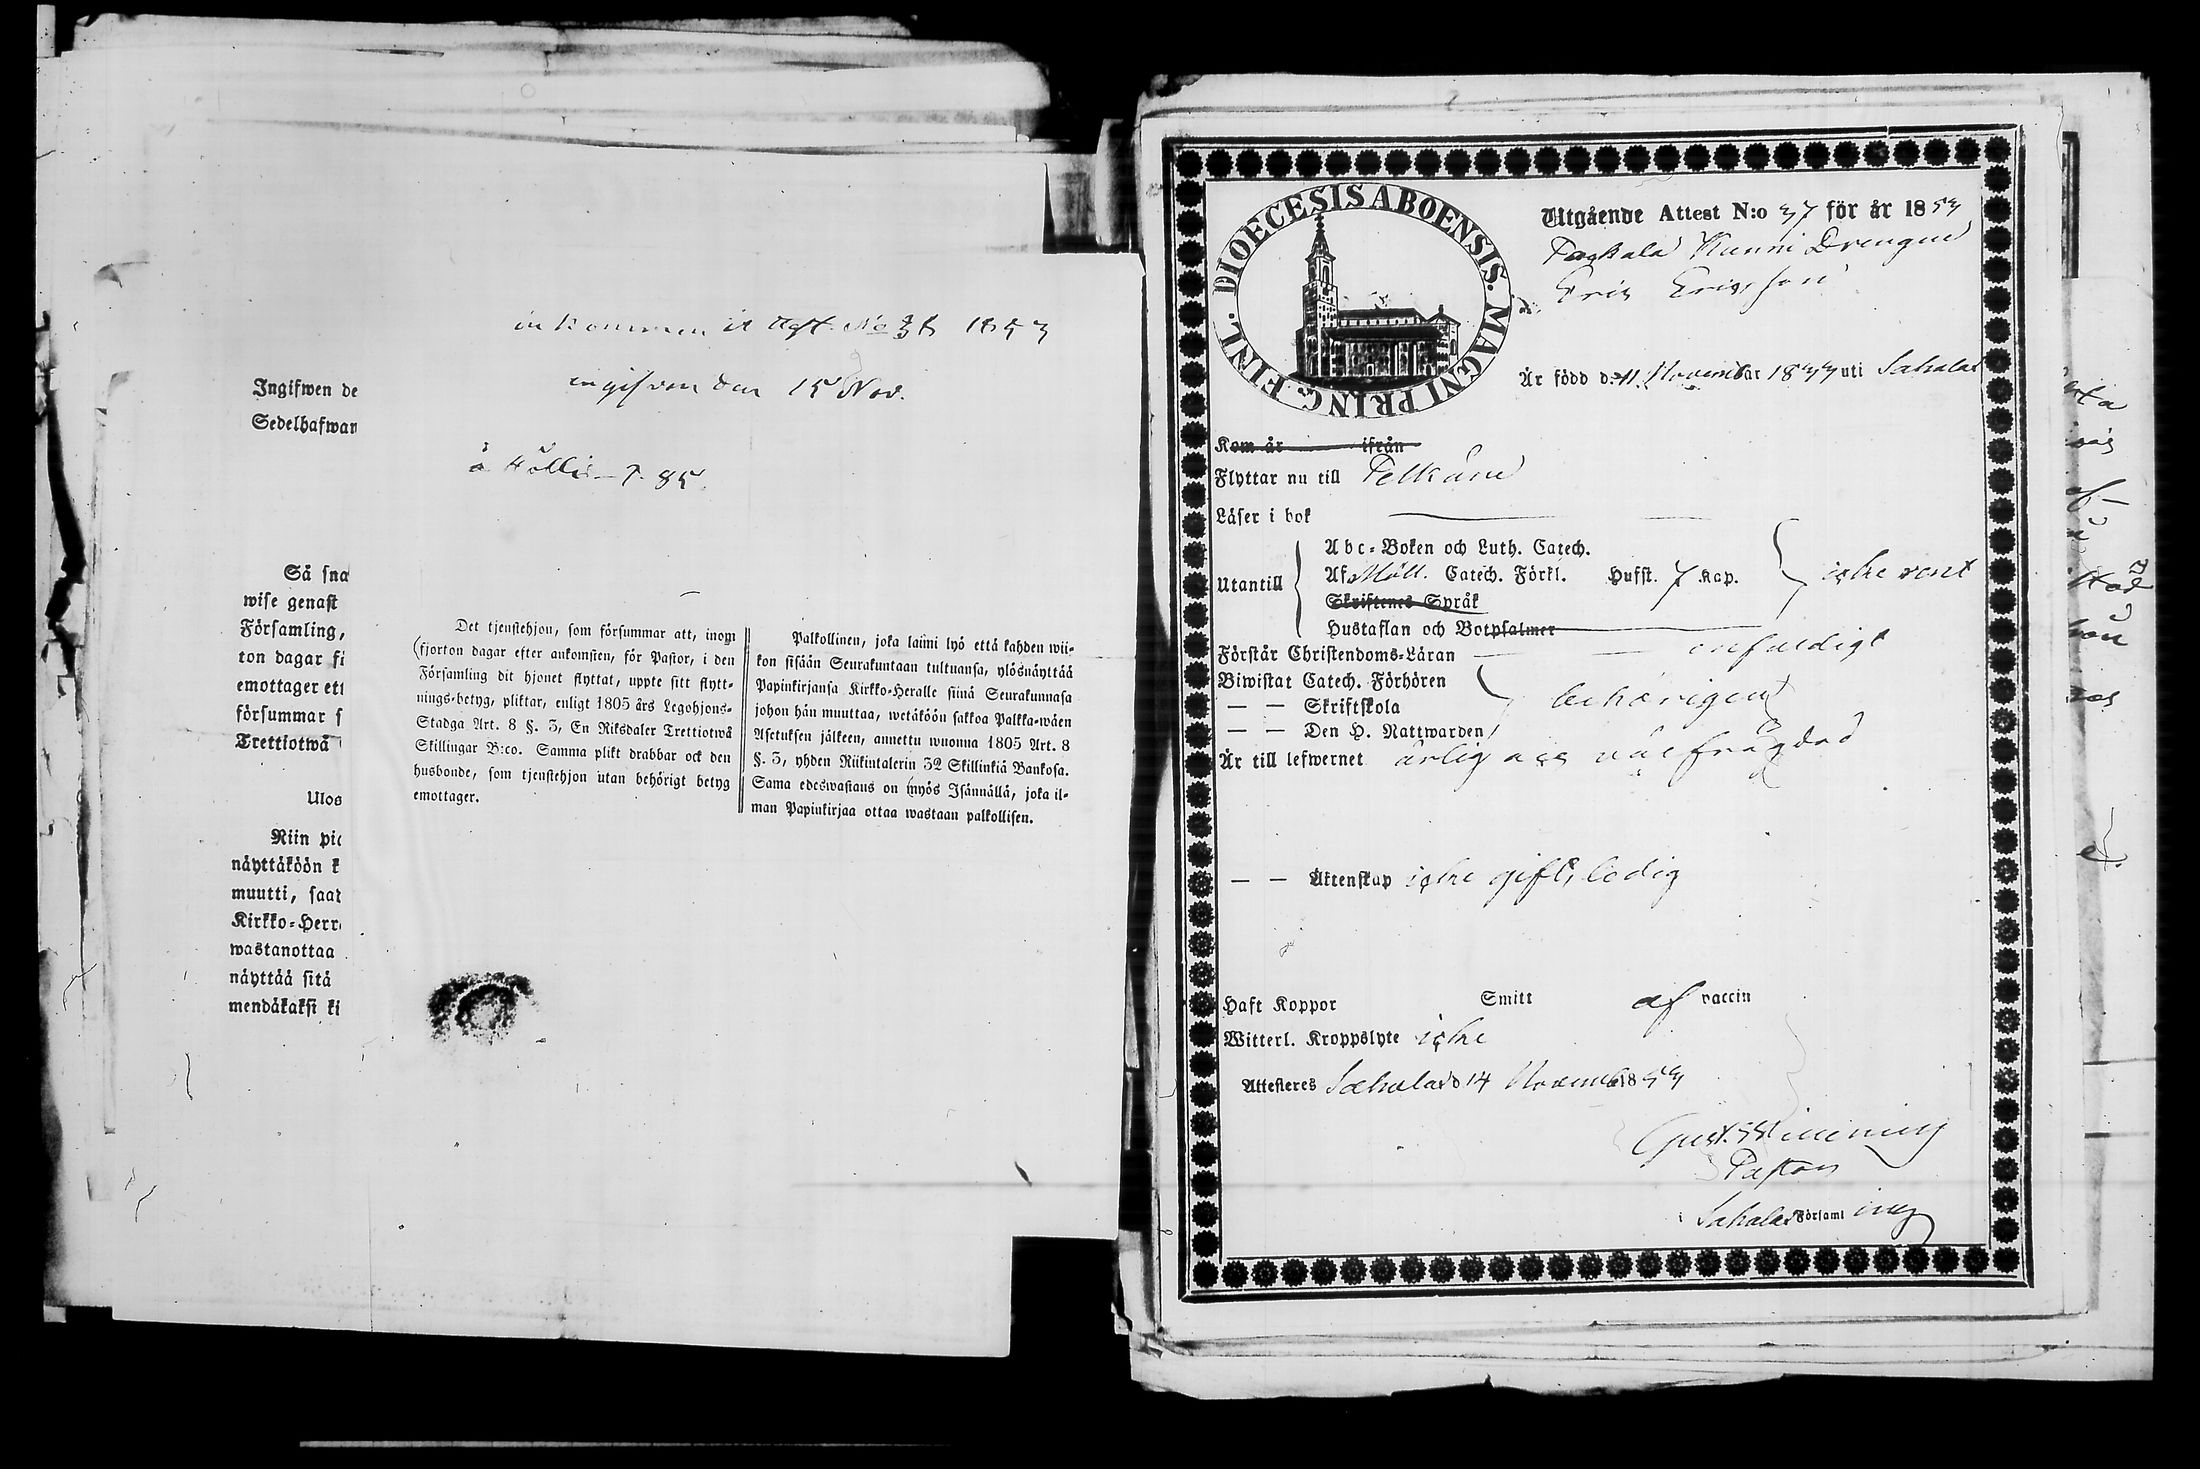 inkommen att Att. No 38 1853
ingifven den 15 Nov.
Ingifwen de
Sedelhafwar
å Hållis p. 85
Så sna
wise genast
Församling,
ton dagar fi
emottager ett
försummar s
Trettiotwå
Ulos
Niin pie
näyttäköön k
muutti, saat
Kirkko-Herr
wastanottaa
näyttää sitä
mendäkaksi ki
Det tjenstehjon, som försummar att, inom
fjorton dagar efter ankomsten, för Pastor, i den
Församling dit hjonet flyttat, uppte sitt flytt-
nings-betyg, pliktar, enligt 1805 års Legohjons-
Stadga Art. 8 §. 3, En Riksdaler Trettiotwå
Skillingar B:co. Samma plikt drabbar ock den
husbonde, som tjenstehjon utan behörigt betyg
emottager.
Palkollinen, joka laimi lyö että kahden wii-
kon sisään Seurakuntaan tultuansa, ylösnäyttää
Papinkirjansa Kirkko-Heralle siinä Seurakunnasa
johon hän muuttaa, wetäköön sakkoa Palkka-wäen
Asetuksen jälkeen, annettu wuonna 1805 Art. 8
§. 3, yhden Riikintalerin 32 Skillinkiä Bankosa.
Sama edeswastaus on myös Isännällä, joka il-
man Papinkirjaa ottaa wastaan palkollisen.
DIOECESIS ABOENSIS. MAGNI PRINC. FINL.
Utgående Attest N:o 37 för år 1853
Drengen
Eric Ericsson
Är född d. 11 November 1833 uti Sahalax
Kom år ifrån
Flyttar nu till Pelkäne
Läser i bok
Utantill
Abc-Boken och Luth. Catech.
Af Möll. Catech. Förkl. Hufst. 7 Kap.
icke rent
Skriftenes Språk
Hustaflan och Botpsalmer
Förstår Christendoms-Läran enfaldigt
Biwistat Catech. Förhören
— — Skriftskola behörigen
— — Den H. Nattwarden
Är till lefwernet ärlig och välfrägdad
— — Äktenskap icke gift, ledig
Haft Koppor Smitt af vaccin
Witterl. Kroppslyte icke
Attesteres Sahalax d 14 Novemb 1853
Gust.
Pastor
i Sahalax Församling